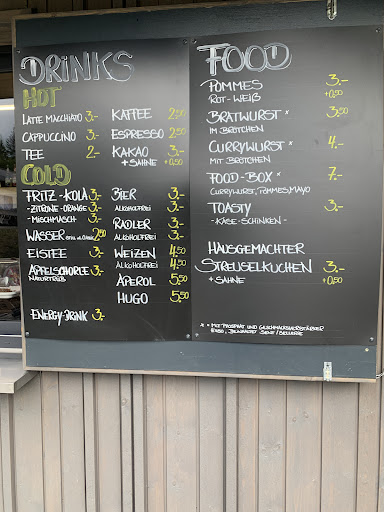 DRINKS
HOT
LATTE MACCHIATO 3.-
CAPPUCCINO 3.-
TEE 2.-
KAFFEE 2,50
ESPRESSO 2,50
KAKAO 3.-
+ SAHNE +0,50
COLD
FRITZ-KOLA 3.-
- ZITRONE - ORANGE 3.-
- MISCHMASCH 3.-
WASSER 2,50
EISTEE 3.-
APFELSCHORLE 3.-
NATURTRÜB
ENERGY-DRINK 3.-
BIER 3.-
ALKOHOLFREI 3.-
RADLER 3.-
ALKOHOLFREI 3.-
WEIZEN 4,50
ALKOHOLFREI 4,50
APEROL 5,50
HUGO 5,50
FOOD
POMMES 3.-
ROT-WEIß +0,50
BRATWURST * 3,50
IM BRÖTCHEN
CURRYWURST * 4.-
MIT BRÖTCHEN
FOOD-BOX * 7.-
CURRYWURST, POMMES, MAYO
TOASTY 3.-
- KÄSE-SCHINKEN -
HAUSGEMACHTER
STREUSELKUCHEN 3.-
+ SAHNE +0,50
* = MIT PHOSPHAT UND GESCHMACKSVERSTÄRKER